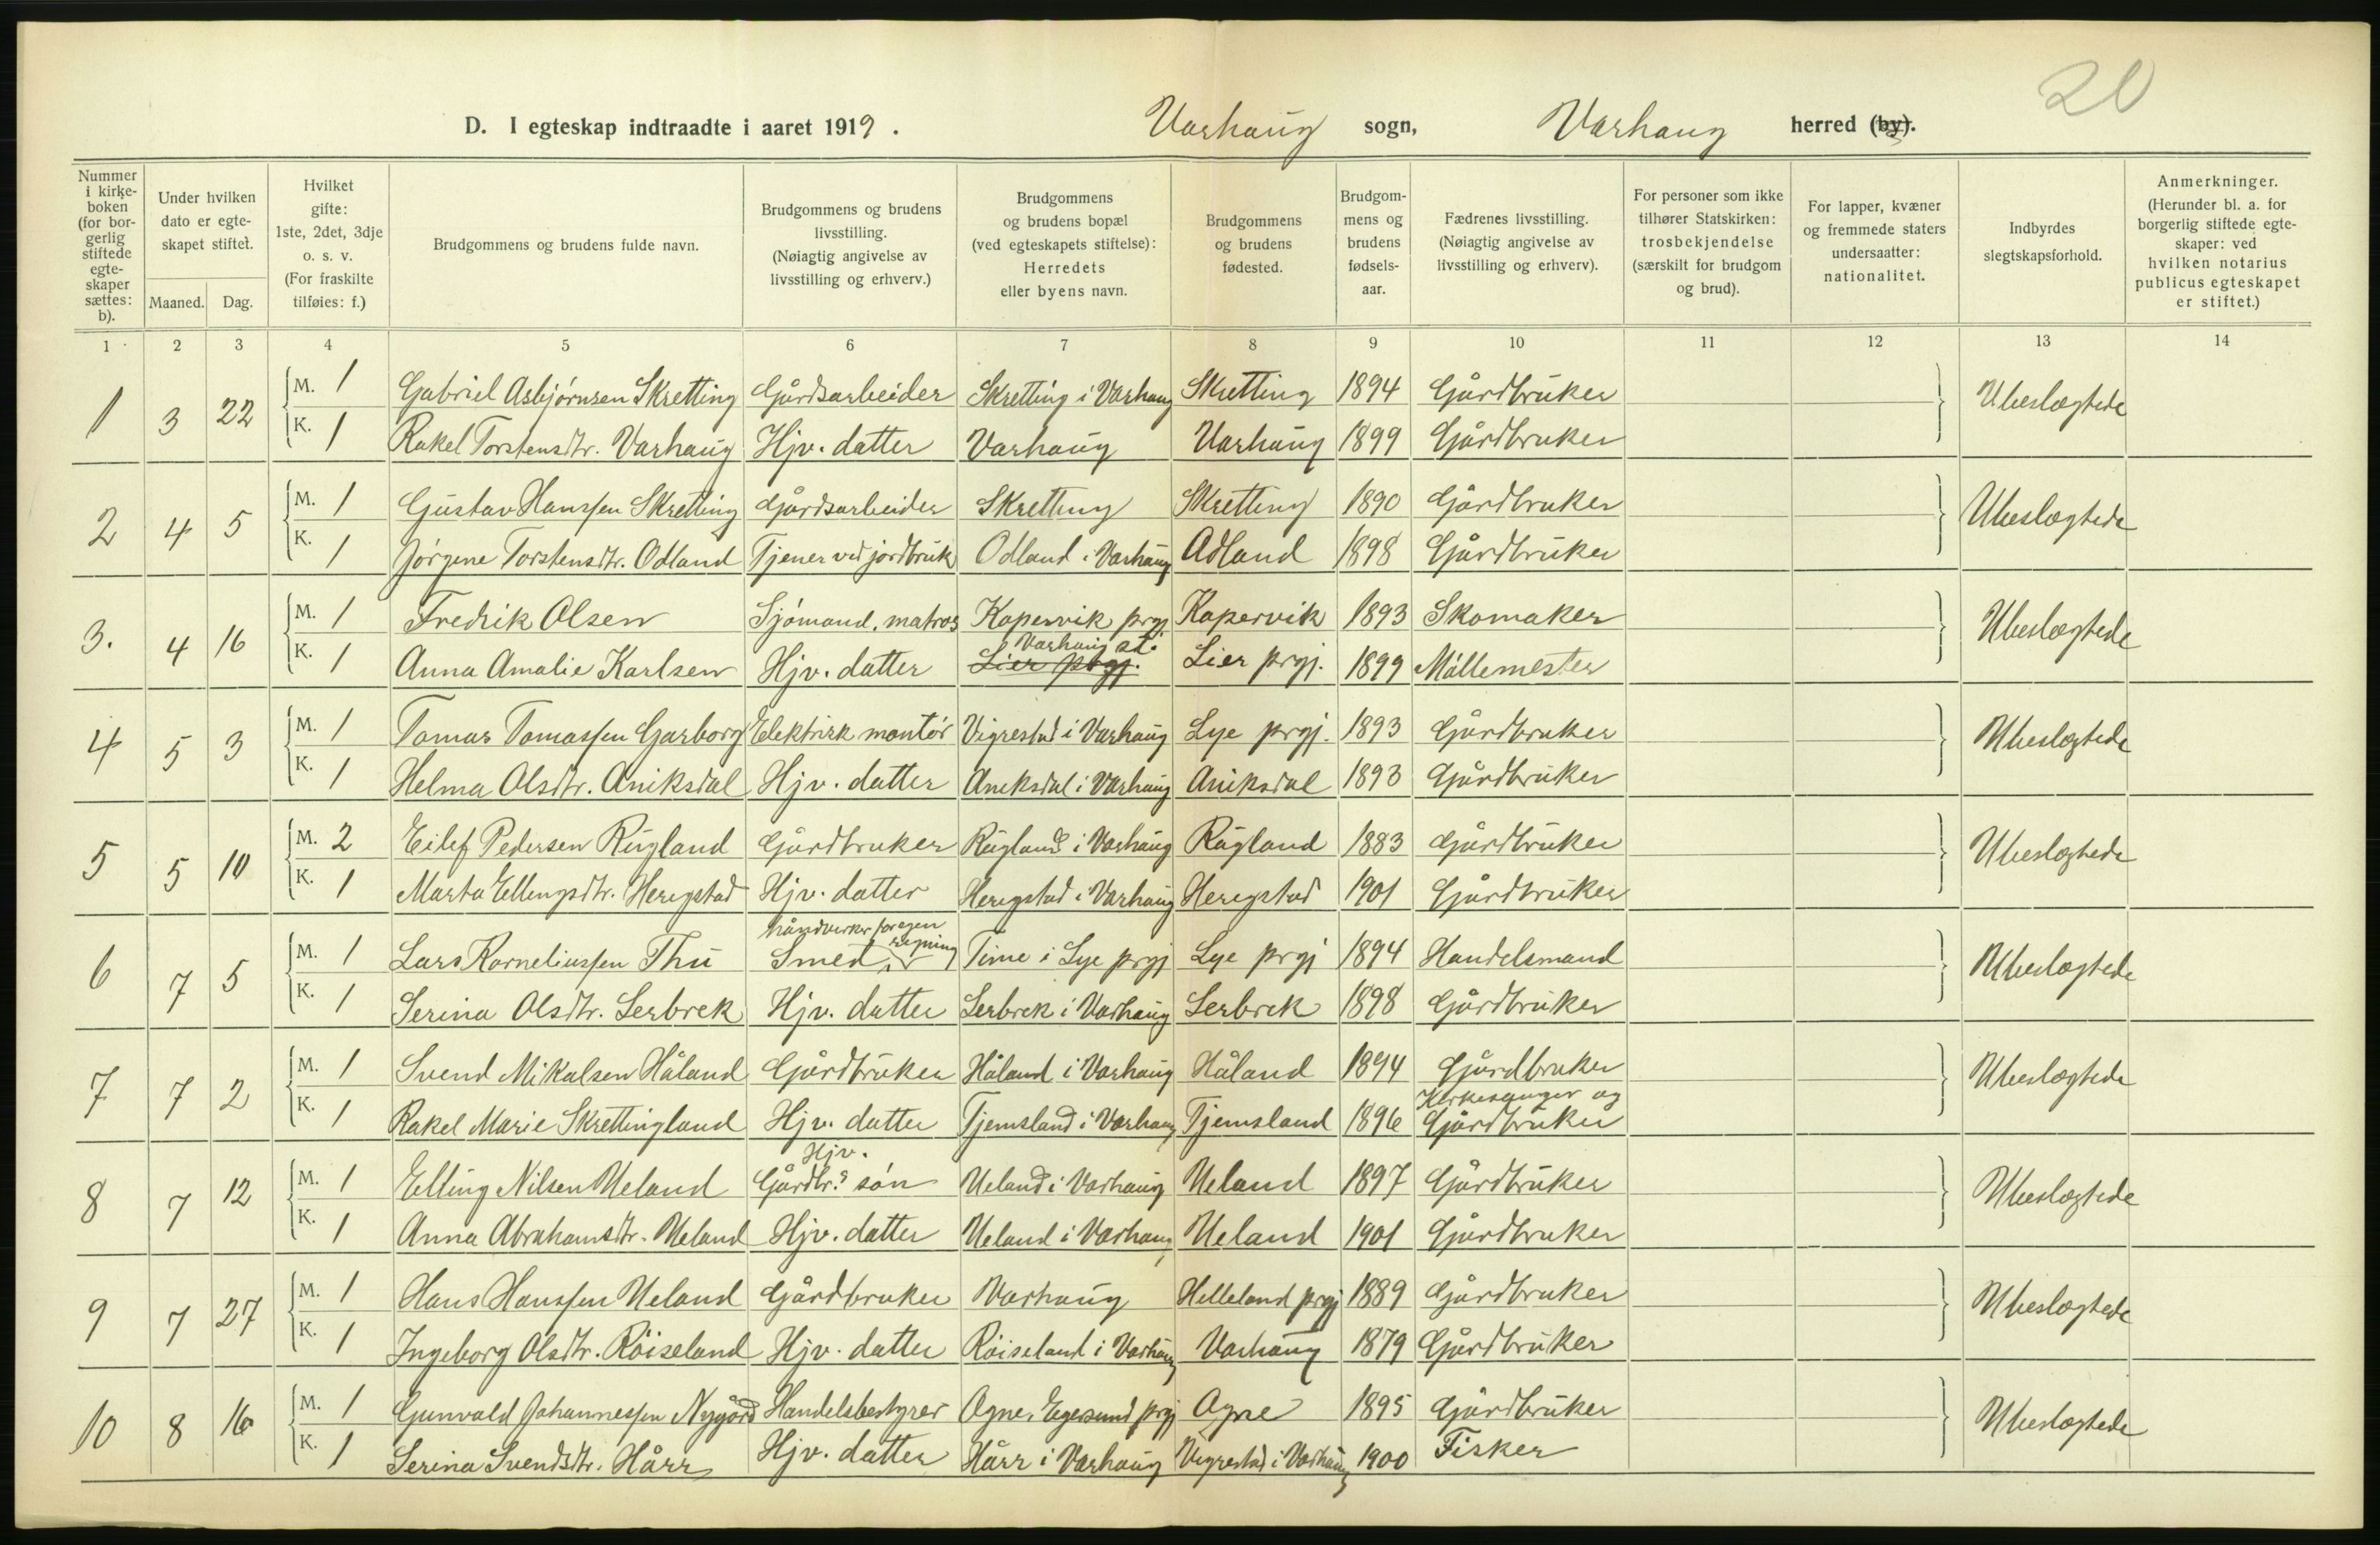 20
D. I egteskap indtraadte i aaret 1919. Varhaug sogn, Varhaug herred (by).
Nummer i kirke-boken (for bor-gerlig stiftede egte-skaper sættes: b).
Under hvilken dato er egte-skapet stiftet.
Maaned. Dag.
Hvilket gifte: 1ste, 2det, 3dje o. s. v. (For fraskilte tilføies: f.)
Brudgommens og brudens fulde navn.
Brudgommens og brudens livsstilling. (Nøiagtig angivelse av livsstilling og erhverv.)
Brudgommens og brudens bopæl (ved egteskapets stiftelse): Herredets eller byens navn.
Brudgommens og brudens fødested.
Brudgom-mens og brudens fødsels-aar.
Fædrenes livsstilling. (Nøiagtig angivelse av livsstilling og erhverv).
For personer som ikke tilhører Statskirken: trosbekjendelse (særskilt for brudgom og brud).
For lapper, kvæner og fremmede staters undersaatter: nationalitet.
Indbyrdes slegtskapsforhold.
Anmerkninger. (Herunder bl. a. for borgerlig stiftede egte-skaper: ved hvilken notarius publicus egteskapet er stiftet.)
1 2 3 4 5 6 7 8 9 10 11 12 13 14
1 3 22 M. 1 Gabriel Asbjørnsen Skretting Gårdsarbeider Skretting i Varhaug Skretting 1894 Gårdbruker Ubeslægtede
K. 1 Rakel Torstensdtr. Varhaug Hjv. datter Varhaug Varhaug 1899 Gårdbruker
2 4 5 M. 1 Gustav Hanssen Skretting Gårdsarbeider Skretting Skretting 1890 Gårdbruker Ubeslægtede
K. 1 Jørgine Torstensdtr. Odland Tjener ved jordbruk Odland i Varhaug Adland 1898 Gårdbruker
3. 4 16 M. 1 Fredrik Olsen Sjömand, matros Kopervik prgj. Kopervik 1893 Skomaker Ubeslægtede
K. 1 Anna Amalie Karlsen Hjv. datter Lier prgj. Varhaug st. Lier prgj. 1899 Möllemester
4 5 3 M. 1 Tomas Tomassen Garborg Elektrisk montör Vigrestad i Varhaug Lye prgj. 1893 Gårdbruker Ubeslægtede
K. 1 Helma Olsdtr. Aniksdal Hjv. datter Aniksdal i Varhaug Aniksdal 1893 Gårdbruker
5 5 10 M. 2 Eilef Pedersen Rugland Gårdbruker Rugland i Varhaug Rugland 1883 Gårdbruker Ubeslægtede
K. 1 Marta Ellingsdtr. Herigstad Hjv. datter Herigstad i Varhaug Herigstad 1901 Gårdbruker
6 7 5 M. 1 Lars Korneliussen Thu Smed, håndverker for egen regning Time i Lye prgj Lye prgj 1894 Handelsmand Ubeslægtede
K. 1 Serina Olsdtr. Lerbrek Hjv. datter Lerbrek i Varhaug Lerbrek 1898 Gårdbruker
7 7 2 M. 1 Svend Mikalsen Håland Gårdbruker Håland i Varhaug Håland 1894 Gårdbruker Ubeslægtede
K. 1 Rakel Marie Skrettingland Hjv. datter Tjemsland i Varhaug Tjemsland 1896 Kirkesanger og Gårdbruker
8 7 12 M. 1 Elling Nilsen Ueland Hjv. Gårdbr.s sön Ueland i Varhaug Ueland 1897 Gårdbruker Ubeslægtede
K. 1 Anna Abrahamsdtr. Ueland Hjv. datter Ueland i Varhaug Ueland 1901 Gårdbruker
9 7 27 M. 1 Hans Hanssen Ueland Gårdbruker Varhaug Helleland prgj 1889 Gårdbruker Ubeslægtede
K. 1 Ingeborg Olsdtr. Röiseland Hjv. datter Röiseland i Varhaug Varhaug 1879 Gårdbruker
10 8 16 M. 1 Gunvald Johannessen Nygård Handelsbestyrer Ogne, Egersund prgj Ogne 1895 Gårdbruker Ubeslægtede
K. 1 Serina Svendsdtr. Hårr Hjv. datter Hårr i Varhaug Vigrestad i Varhaug 1900 Fisker